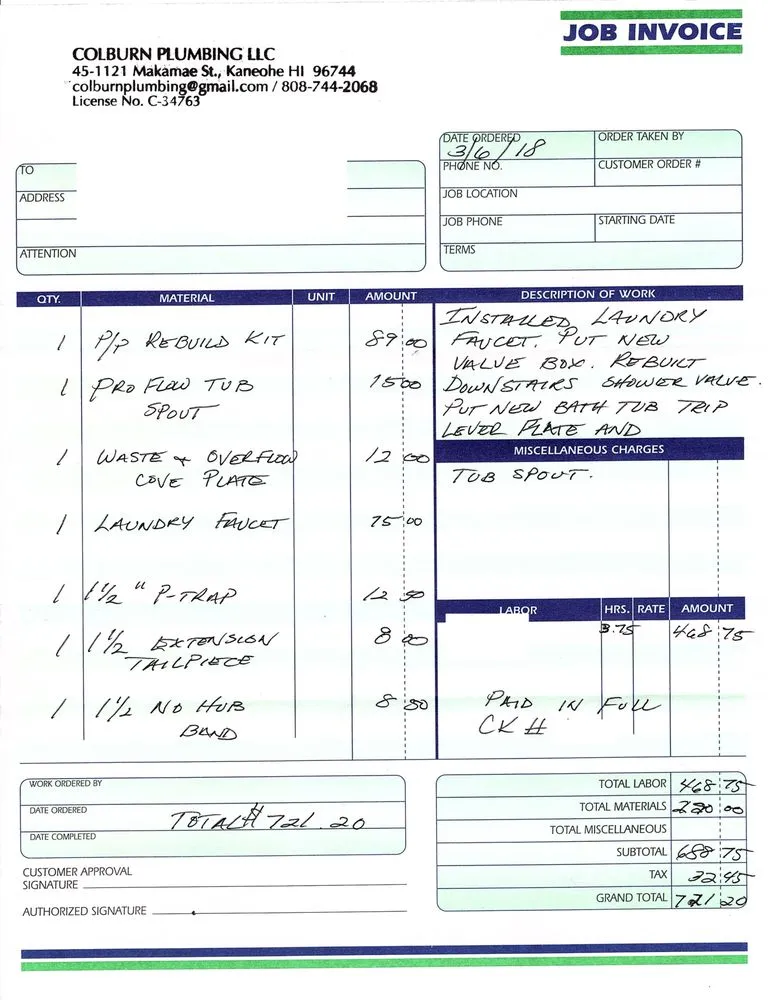 JOB INVOICE
COLBURN PLUMBING LLC
45-1121 Makamae St., Kaneohe HI 96744
colburnplumbing@gmail.com / 808-744-2068
License No. C-34763
TO
ADDRESS
ATTENTION
DATE ORDERED ORDER TAKEN BY
3/6/18
PHONE NO. CUSTOMER ORDER #
JOB LOCATION
JOB PHONE STARTING DATE
TERMS
QTY. MATERIAL UNIT AMOUNT
1 P/P REBUILD KIT 89 00
1 PRO FLOW TUB 15 00
SPOUT
1 WASTE & OVERFLOW 12 00
COVE PLATE
1 LAUNDRY FAUCET 75 00
1 1 1/2" P-TRAP 12 50
1 1 1/2 EXTENSION 8 00
TAILPIECE
1 1 1/2 NO HUB 8 50
BAND
DESCRIPTION OF WORK
INSTALLED LAUNDRY
FAUCET. PUT NEW
VALUE BOX. REBUILT
DOWNSTAIRS SHOWER VALVE.
PUT NEW BATH TUB TRIP
LEVER PLATE AND
MISCELLANEOUS CHARGES
TUB SPOUT.
LABOR HRS. RATE AMOUNT
3.75 468 75
PAID IN FULL
CK #
WORK ORDERED BY
DATE ORDERED
TOTAL # 721.20
DATE COMPLETED
CUSTOMER APPROVAL
SIGNATURE
AUTHORIZED SIGNATURE
TOTAL LABOR 468 75
TOTAL MATERIALS 220 00
TOTAL MISCELLANEOUS
SUBTOTAL 688 75
TAX 32 45
GRAND TOTAL 721 20